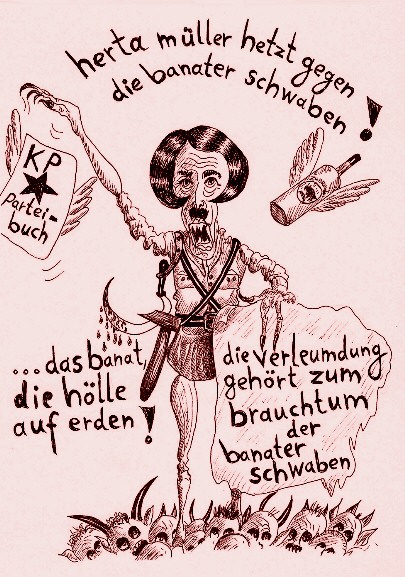 herta müller hetzt gegen
die banater schwaben!
KP
Partei-
buch
...das banat,
die hölle
auf erden!
die verleumdung
gehört zum
brauchtum
der
banater
schwaben